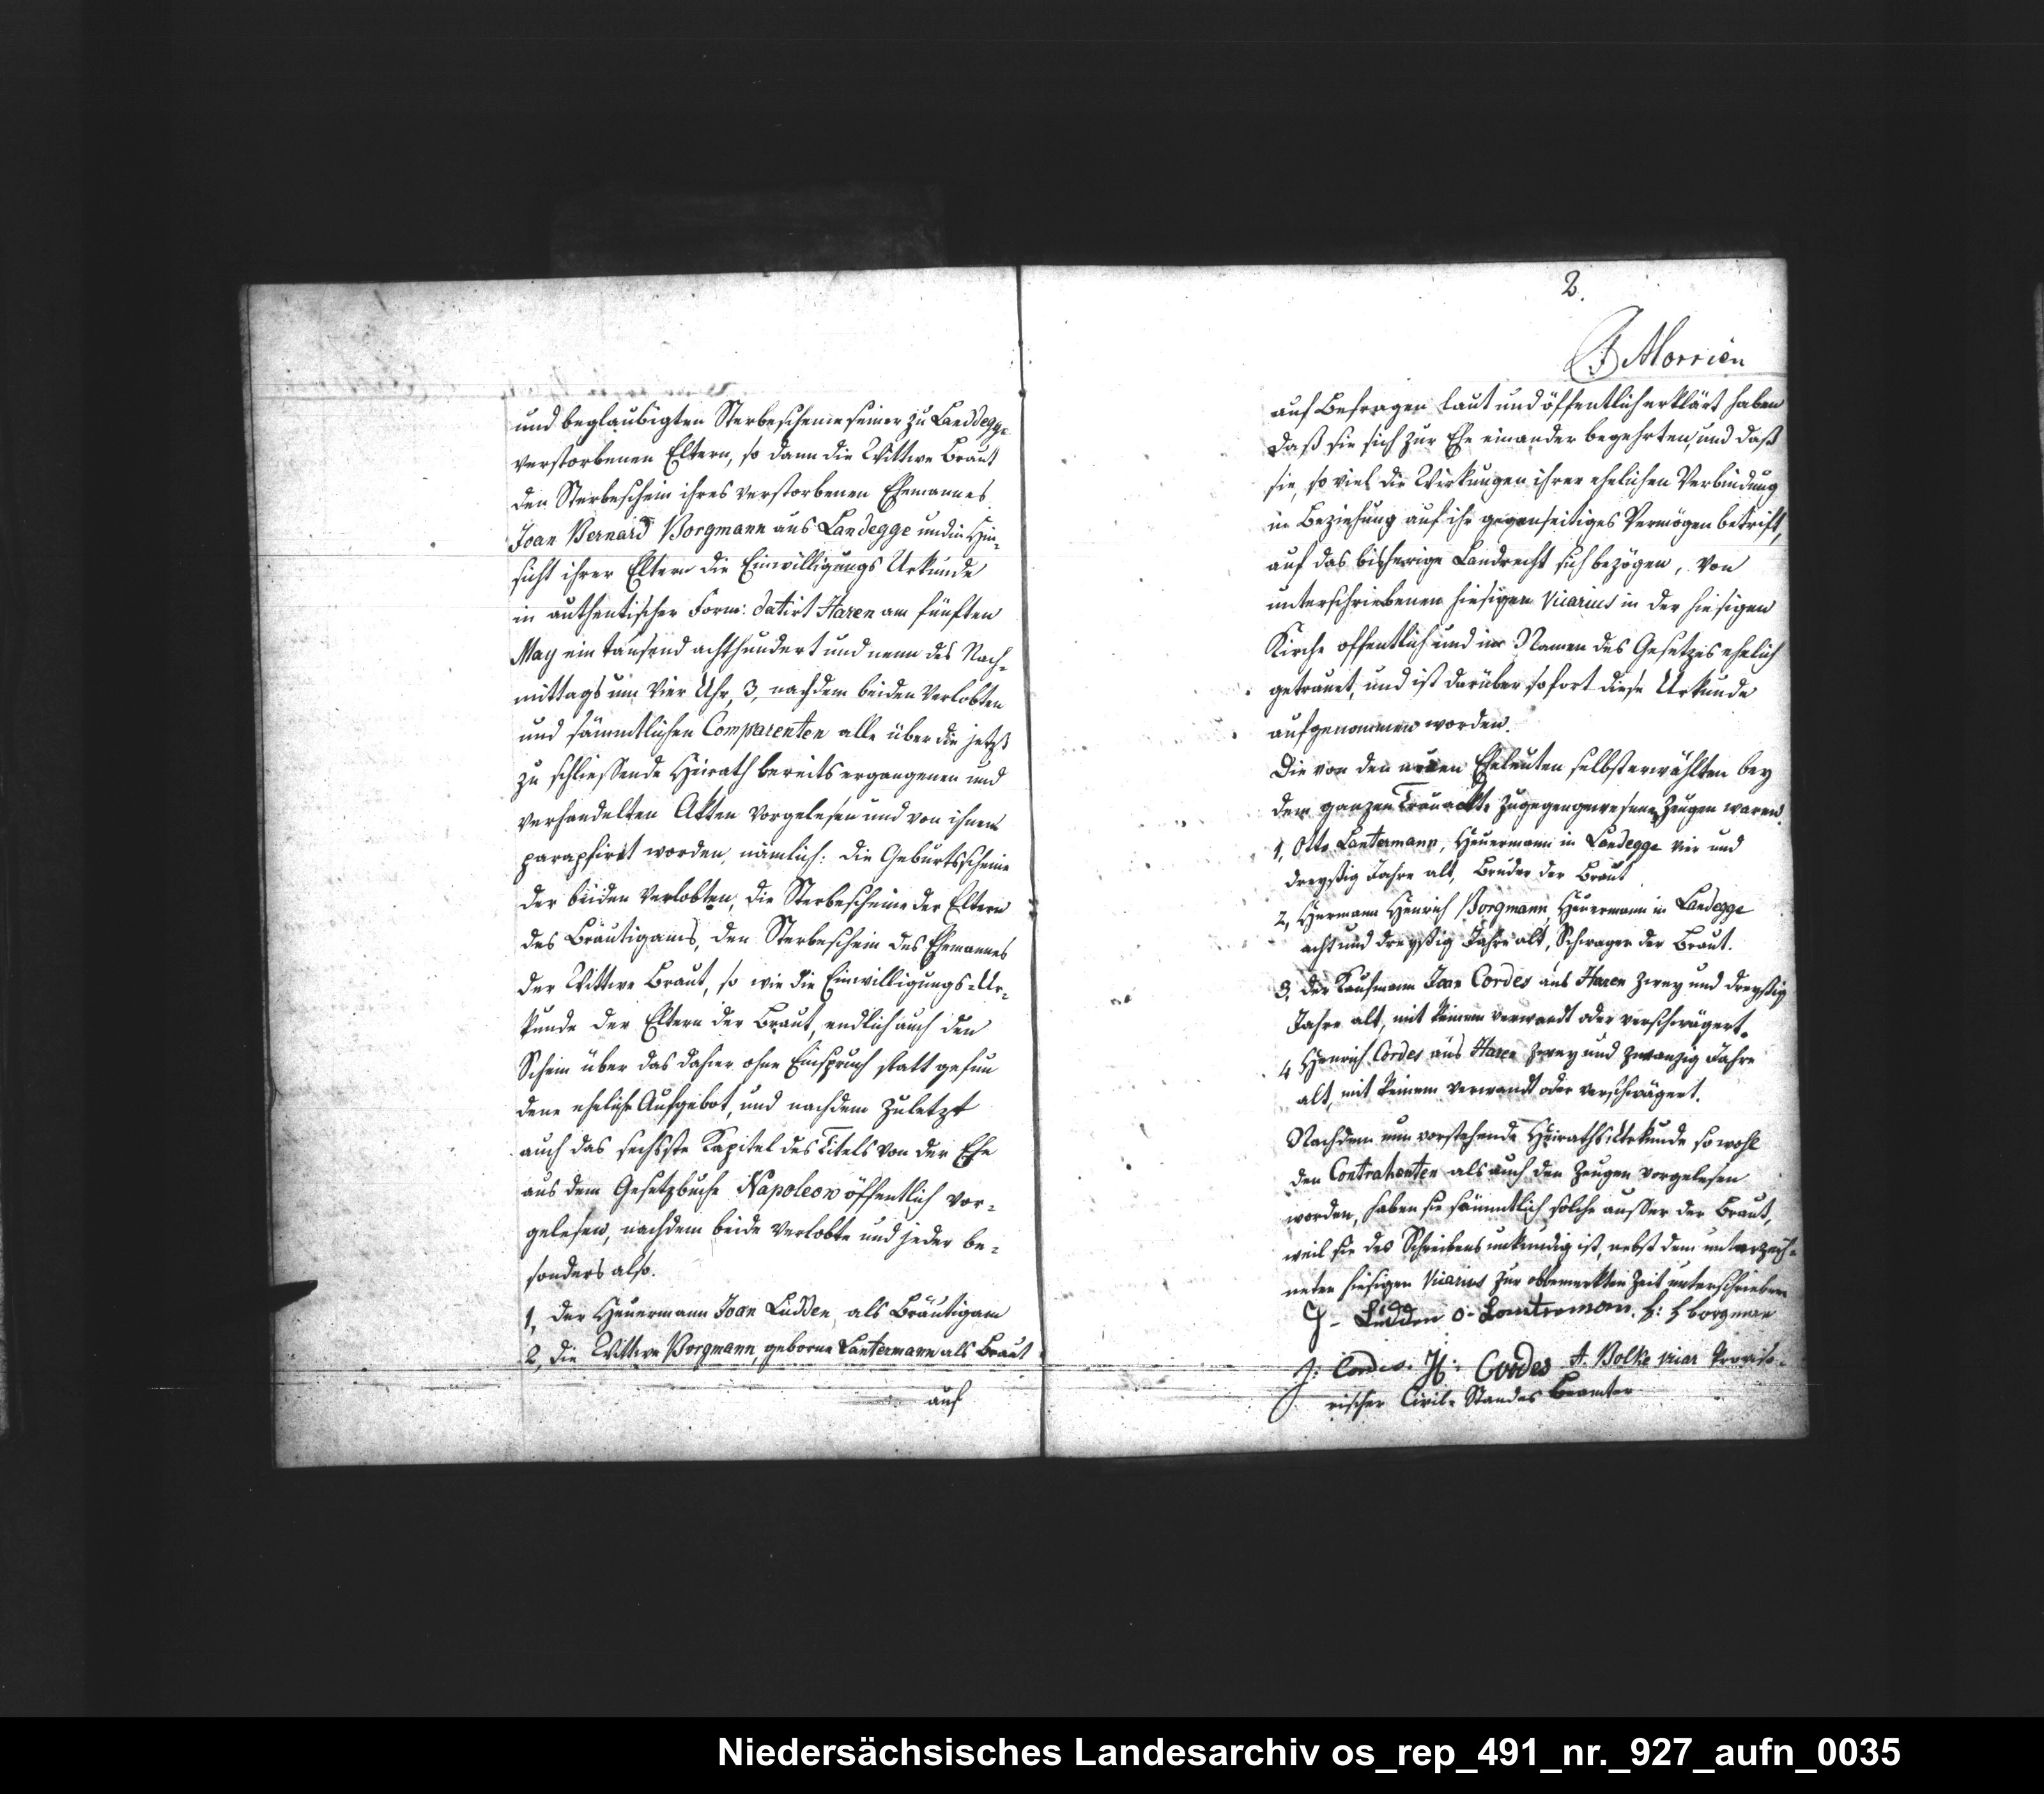 und beglaubigten Sterbescheine seiner zu Landegge
verstorbenen Eltern, so dann die Wittwe Braut
den Sterbeschein ihres verstorbenen Ehemannes
Joan Bernard Borgmann aus Landegge und in Hin-
sicht ihrer Eltern die Einwilligungs Urkunde
in authentischer Form: datirt Haren am fünften
May ein tausend achthundert und neun des Nach-
mittags um Vier Uhr, 3, nachdem beiden Verlobten
und sämmtlichen Comparenten alle über die jetzt
zu schliessende Heirath bereits ergangenen und
verhandelten Akten vorgelesen und von ihnen
paraphirt worden, nämlich: die Geburtsscheine
der beiden Verlobten, die Sterbescheine der Eltern
des Bräutigams, den Sterbeschein des Ehemannes
der Wittwe Braut, so wie die Einwilligungs-Ur-
kunde der Eltern der Braut, endlich auch den
Schein über das dahier ohne Einspruch statt gefun
dene eheliche Aufgebot, und nachdem zuletzt
auch das sechsste Kapitel des Titels von der Ehe
aus dem Gesetzbuche Napoleon öffentlich vor-
gelesen, nachdem beide Verlobte und jeder be-
sonders also.
1, der Heuermann Joan Lüdden, als Bräutigam
2, die Wittwe Borgmann, geborne Lantermann als Braut
auf
2.
Morrien
auf Befragen laut und öffentlich erklärt haben
daß sie sich zur Ehe einander begehrten, und daß
sie, so viel die Wirkungen ihrer ehelichen Verbindung
in Beziehung auf ihr gegenseitiges Vermögen betrift,
auf das bisherige Landrecht sich bezögen, von
unterschriebenen hiesigen Vicarius in der hiesigen
Kirche offentlich und im Namen des Gesetzes ehelich
getrauet, und ist darüber sofort diese Urkunde
aufgenommen worden.
Die von den neuen Eheleuten selbst erwählten bey
dem ganzen Trauackte zugegengewesene Zeugen waren.
1, Otto Lantermann, Heuermann in Landegge vier und
dreyßig Jahre alt, Bruder der Braut
2, Hermann Henrich Borgmann, Heuermann in Landegge
acht und dreyßig Jahre alt, Schwager der Braut.
3, der Kaufmann Joan Cordes aus Haren zwey und dreyßig
Jahre alt, mit keinem verwandt oder verschwägert.
4 Henrich Cordes aus Haren zwey und zwanzig Jahre
alt, mit keinem verwandt oder verschwägert.
Nachdem nun vorstehende Heiraths Urkunde so wohl
den Contrahenten als auch den Zeugen vorgelesen
worden, haben sie sämmtlich solche ausser der Braut,
weil sie des Schreibens unkundig ist, nebst dem unterzeich-
neten hiesigen Vicarius zur obbemerkten Zeit unterschrieben
J- Lüdden o- Lantermann. h: h borgman
J: Cordes. H: Cordes A. Bolke vicar Proviso-
rischer Civil-Standes Beamter
Niedersächsisches Landesarchiv os_rep_491_nr._927_aufn_0035